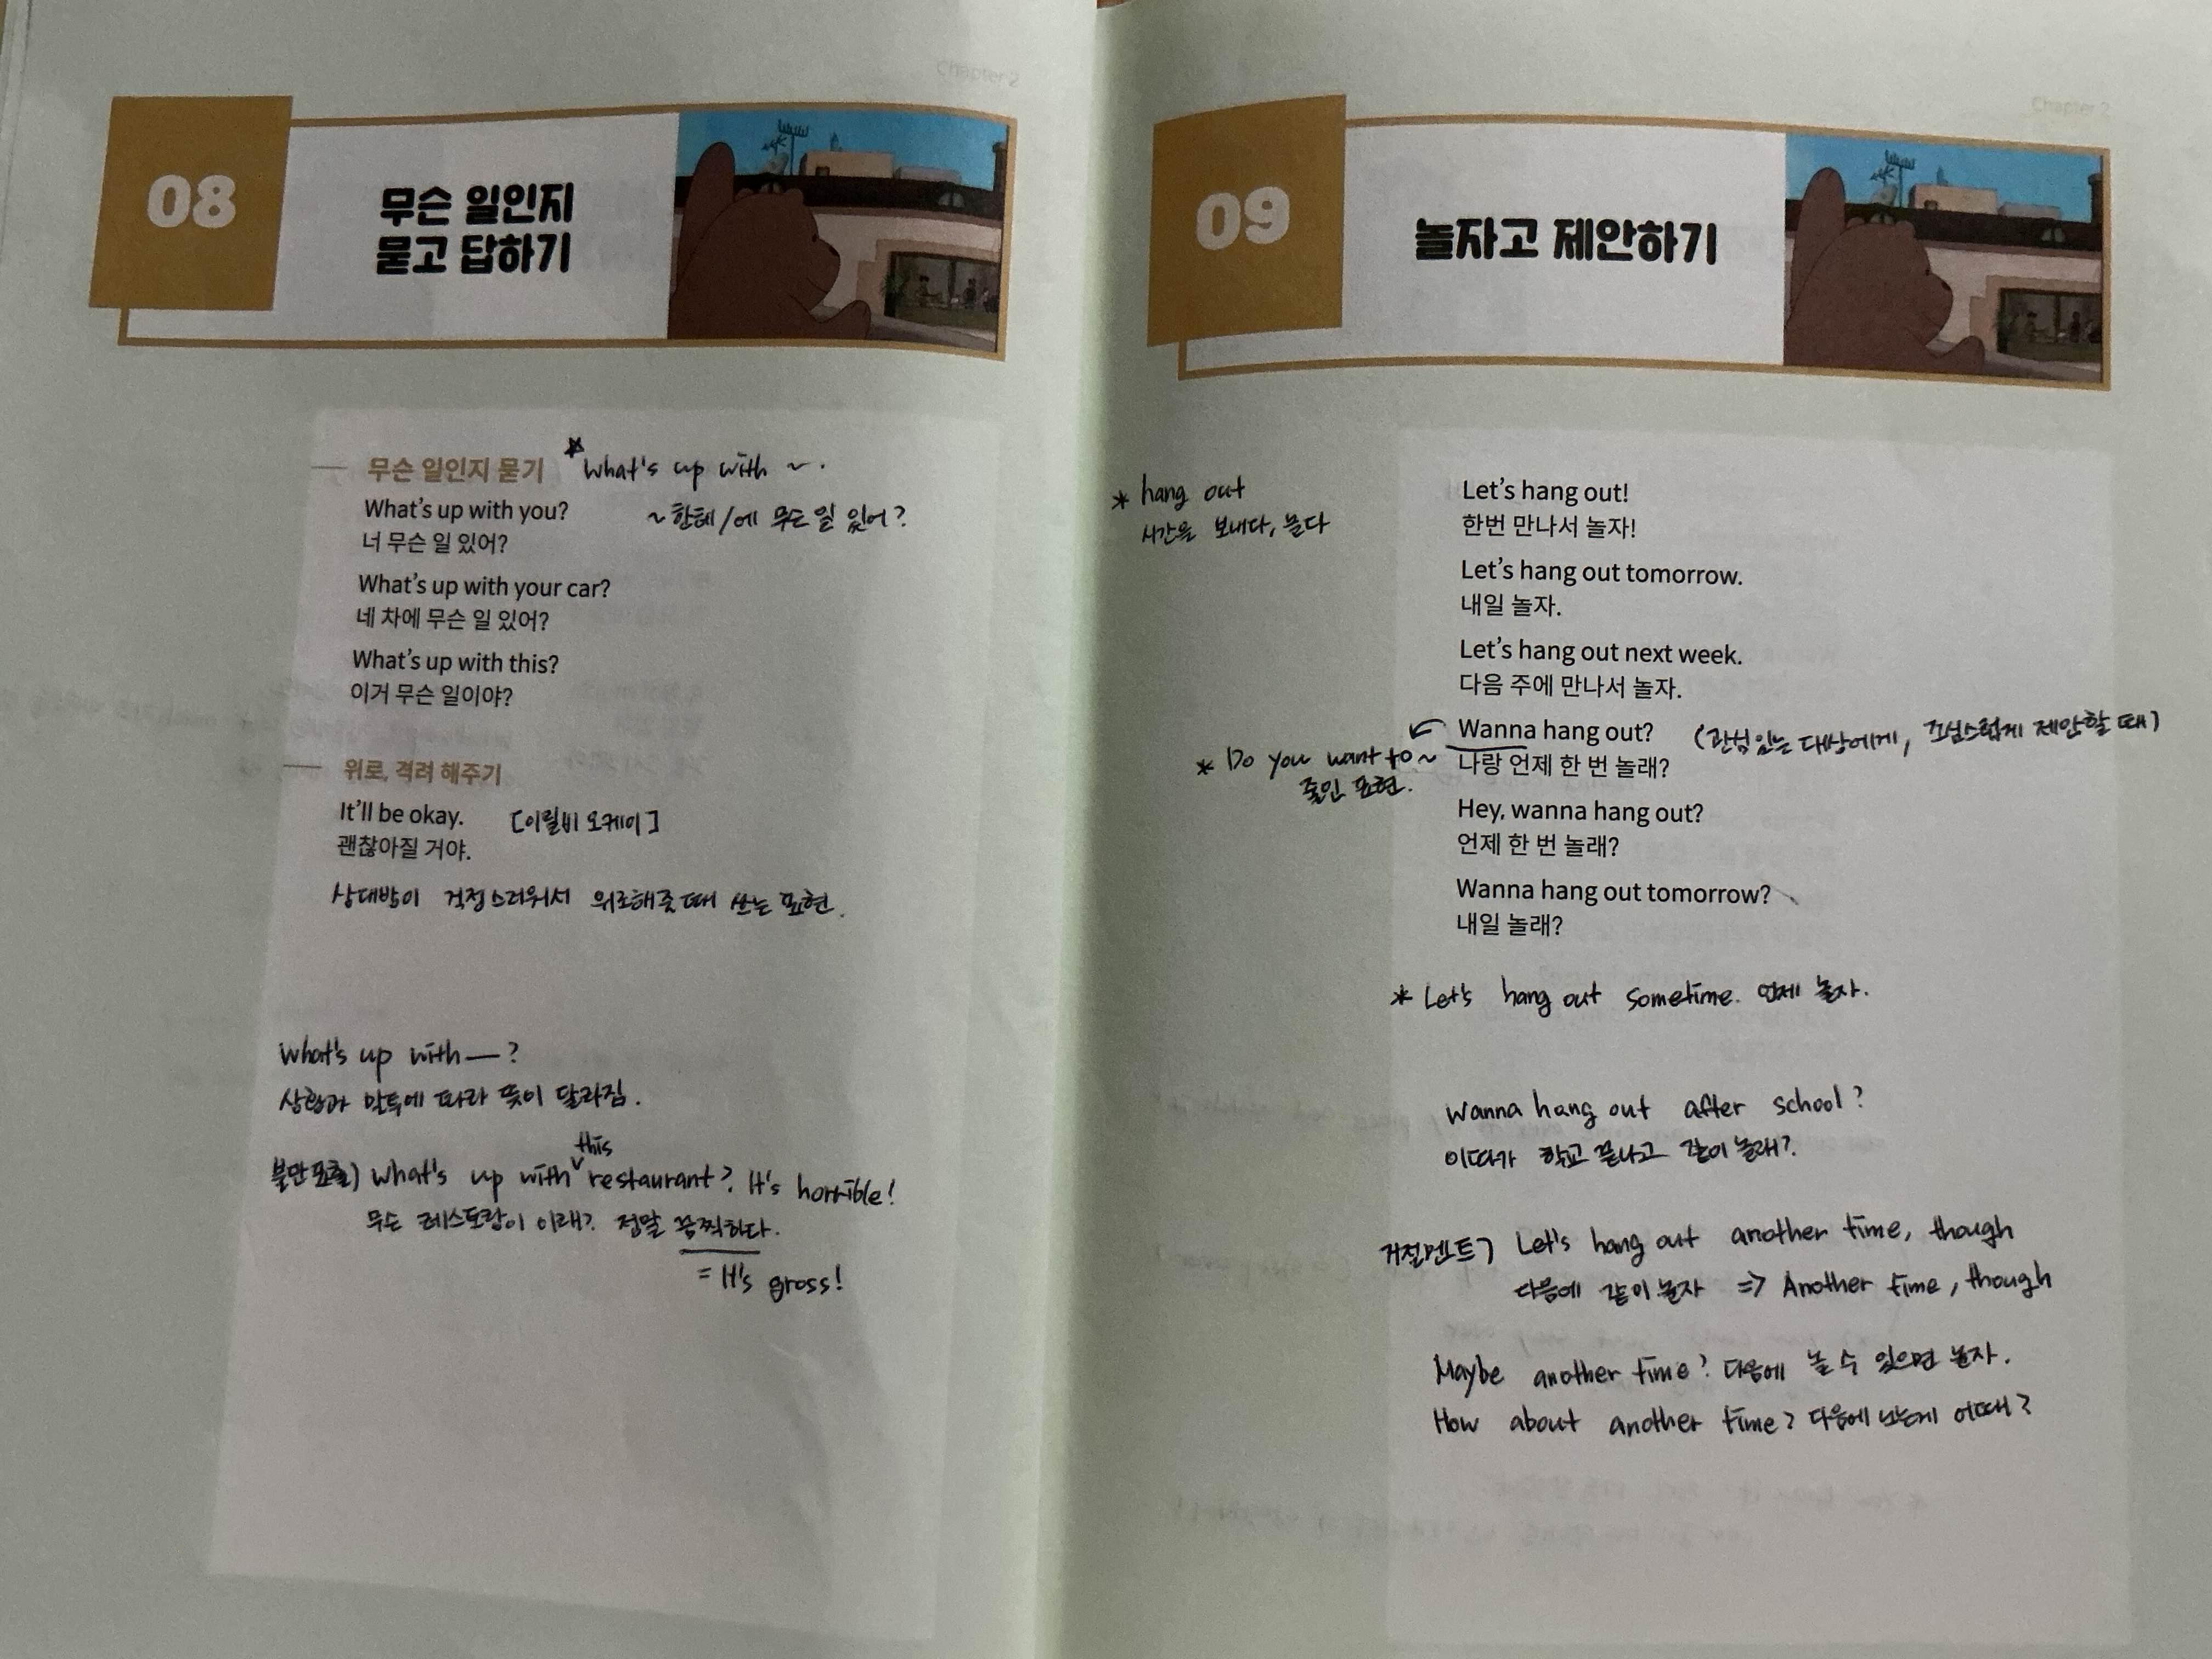 Chapter 2
08
무슨 일인지
묻고 답하기
무슨 일인지 묻기
*What's up with ~.
~한테/에 무슨 일 있어?
What's up with you?
너 무슨 일 있어?
What's up with your car?
네 차에 무슨 일 있어?
What's up with this?
이거 무슨 일이야?
위로, 격려 해주기
It'll be okay. [이릴비 오케이]
괜찮아질 거야.
상대방이 걱정스러워서 위로해줄 때 쓰는 표현.
What's up with — ?
상황과 말투에 따라 뜻이 달라짐.
불만표출) What's up with this restaurant? It's horrible!
무슨 레스토랑이 이래? 정말 끔찍하다.
= It's gross!
Chapter 2
09
놀자고 제안하기
* hang out
시간을 보내다, 놀다
Let's hang out!
한번 만나서 놀자!
Let's hang out tomorrow.
내일 놀자.
Let's hang out next week.
다음 주에 만나서 놀자.
Wanna hang out? (관심있는 대상에게, 조심스럽게 제안할 때)
나랑 언제 한 번 놀래?
* Do you want to ~
줄인 표현.
Hey, wanna hang out?
언제 한 번 놀래?
Wanna hang out tomorrow?
내일 놀래?
* Let's hang out sometime. 언제 놀자.
Wanna hang out after school?
이따가 학교 끝나고 같이 놀래?
거절멘트) Let's hang out another time, though
다음에 같이 놀자 => Another time, though
Maybe another time? 다음에 놀 수 있으면 놀자.
How about another time? 다음에 노는게 어때?